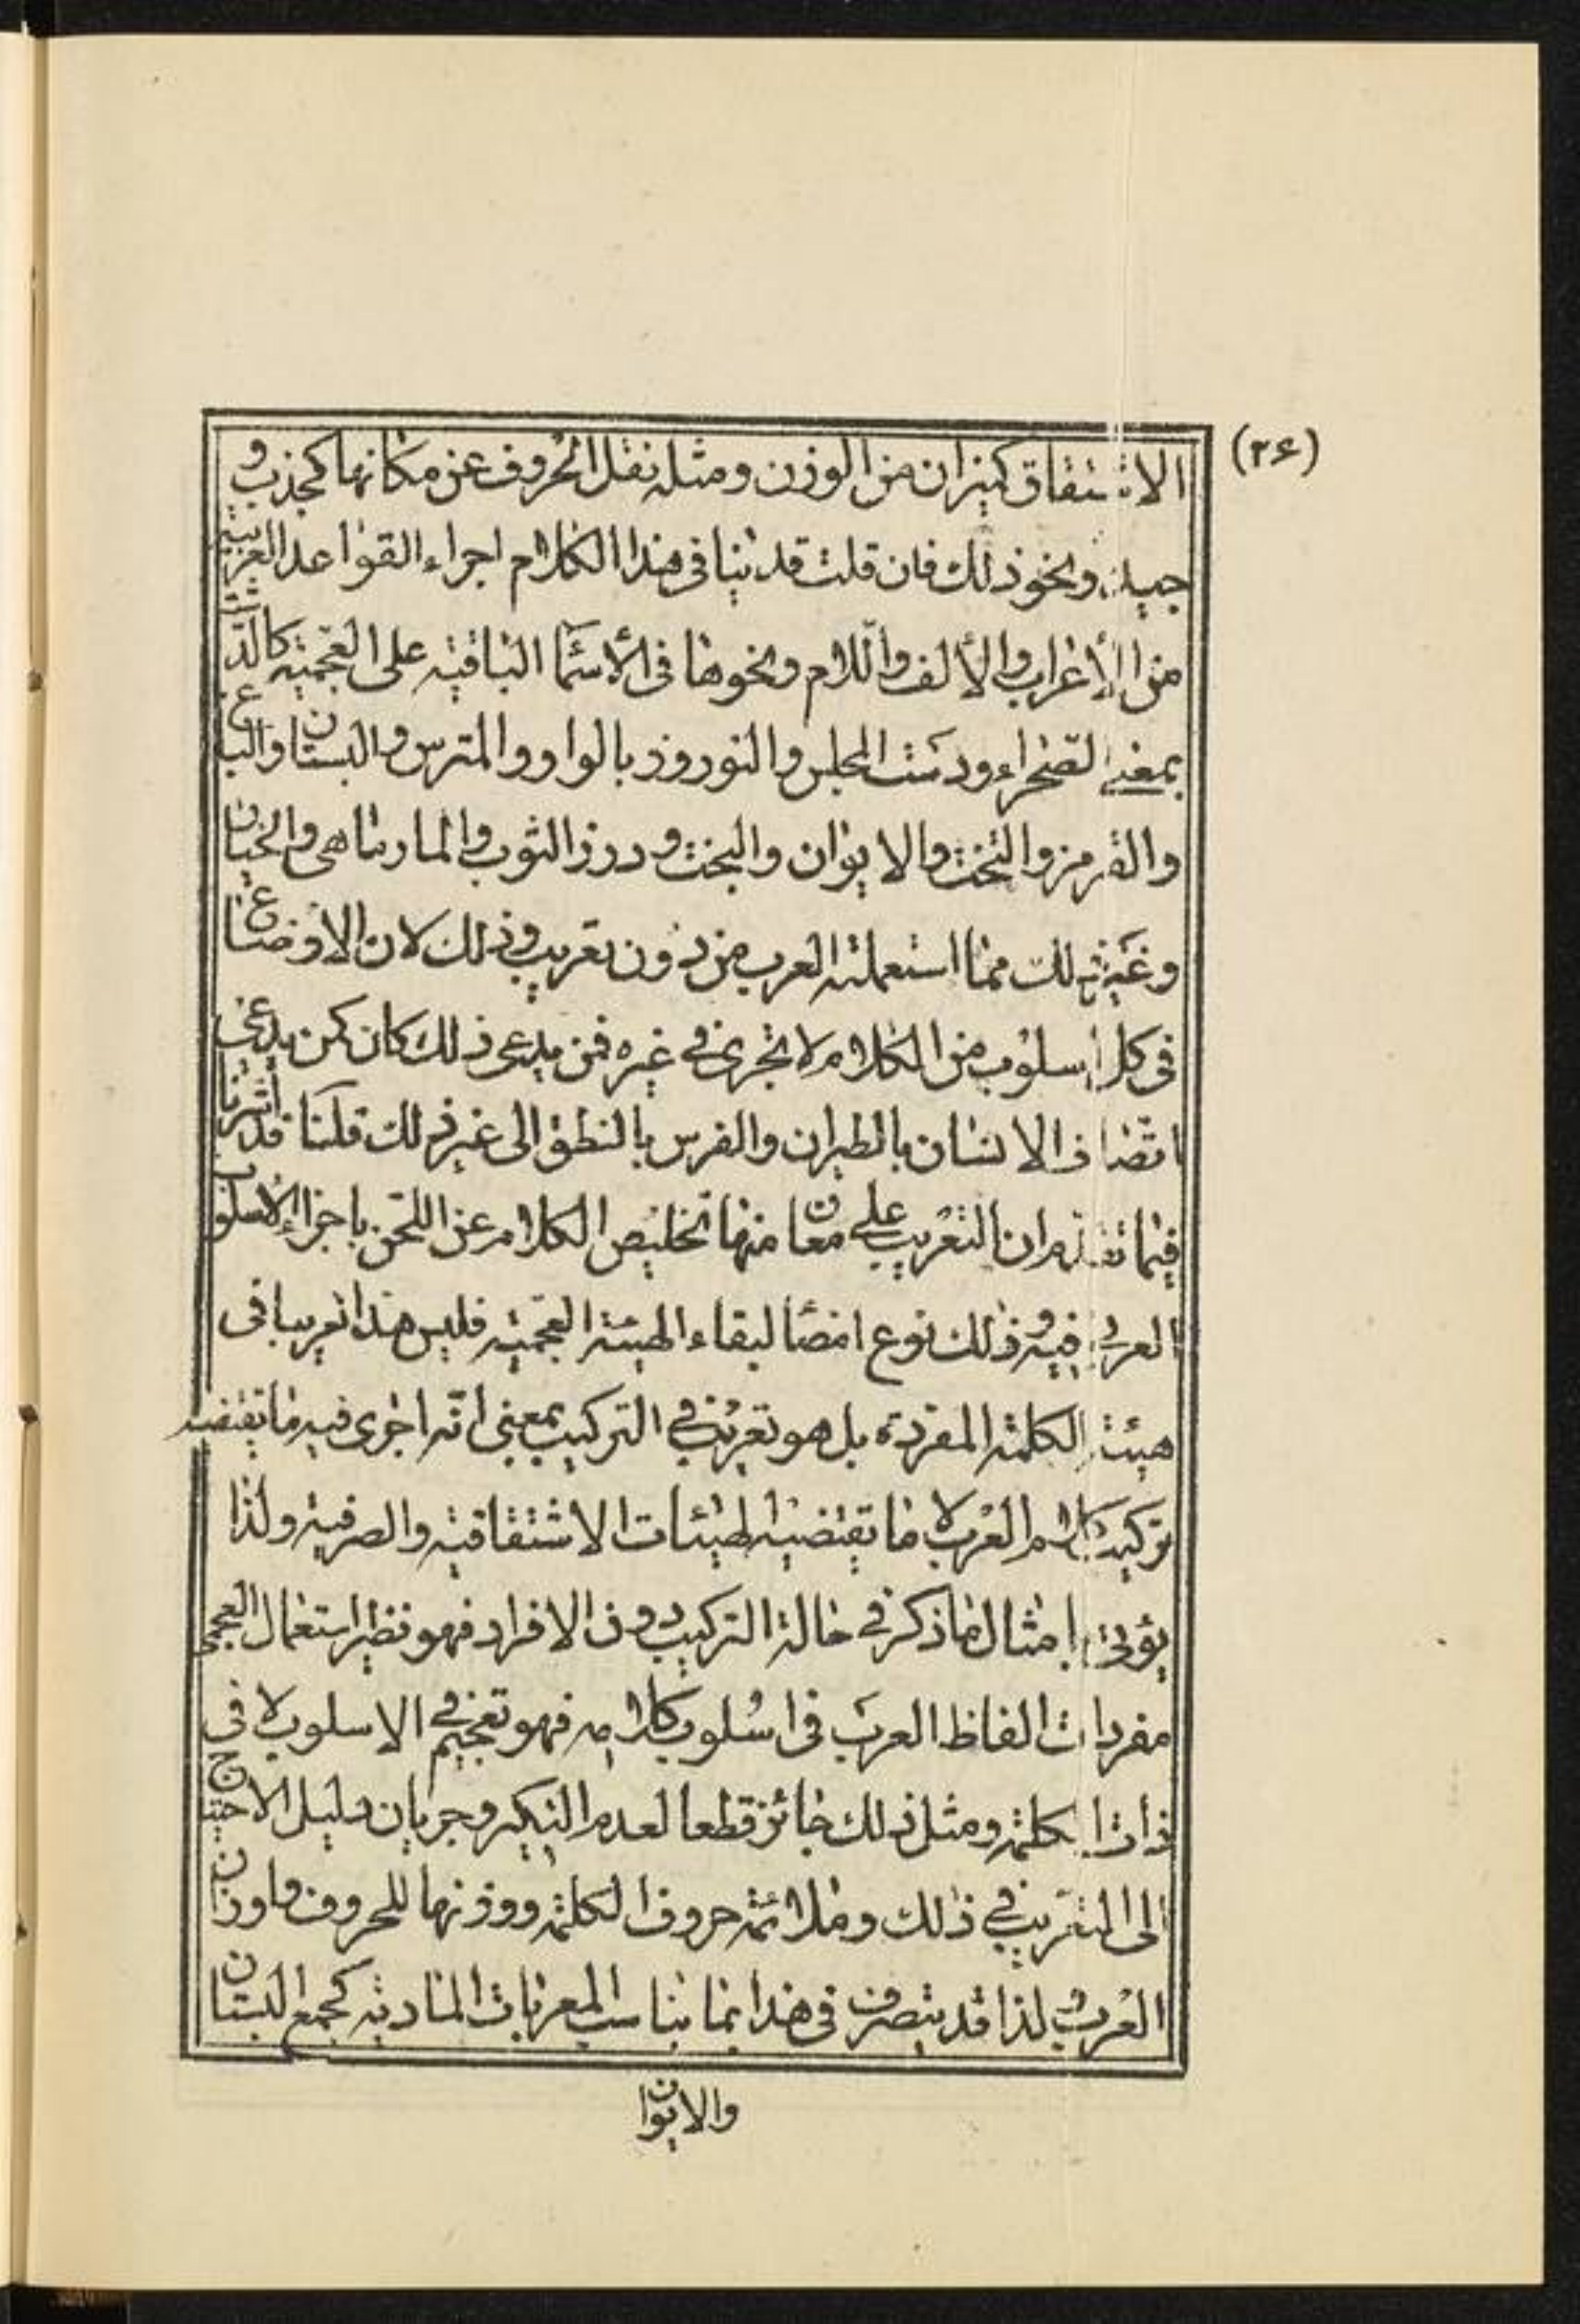 (٢۶)
الاشتقاق كميزان من الوزن ومثله نقل الحروف عن مكانها كجذب و
جبذ ونحو ذلك فان قلت قد نبنا فى هذا الكلام اجراء القواعد العربية
من الأعراب والألف واللام ونحوها فى الأسمآ الباقية على العجمية كالدشت
بمعنى الصحراء ودست المجلس والنوروز بالواو والمترس والبستان والباغ
والقرمز والتخت والايوان والبخت ودرز الثوب والمارماهى والخيار
وغير ذلك مما استعملته العرب من دون تعريب وذلك لان الاوضاع
فى كل اسلوب من الكلام لا تجرى فى غيره فمن يدعى ذلك كان كمن يدعى
اتصاف الانسان بالطيران والفرس بالنطق الى غير ذلك قلنا قد اشرنا
فيما تقدم ان التعريب على معان منها تخليص الكلام عن اللحن باجراء الاسلوب
العربى فيه وذلك نوع امضآ لبقاء الهيئة العجمية فليس هذا تعريبا فى
هيئة الكلمة المفردة بل هو تعريب فى التركيب بمعنى انه اجرى فيه ما تقتضيه
تركيب كلام العرب لا ما تقتضيه الهيئات الاشتقاقية والصرفية ولذا
يؤتى بامثال ما ذكر فى حالة التركيب دون الافراد فهو نظير استعمال العجمى
مفردات الفاظ العرب فى اسلوب كلامه فهو تعجيم فى الاسلوب لا فى
ذات الكلمة ومثل ذلك جائز قطعا لعدم النكير وجريان دليل الاحتياج
الى التعريب فى ذلك وملائمة حروف الكلمة ووزنها للحروف واوزان
العرب لذا قد يتصرف فى هذا بما يناسب المعربات المادية كجمع البستان
والايوان